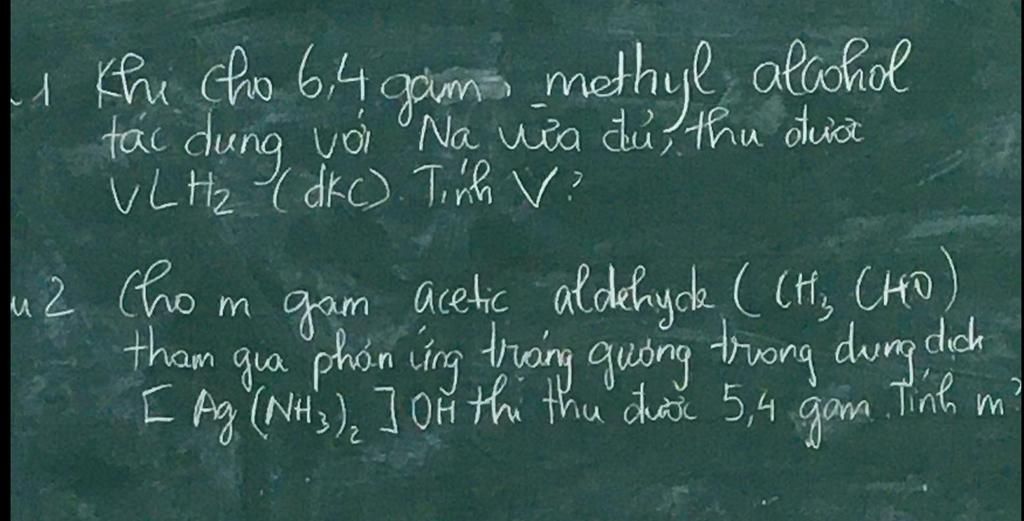 .1 Khi cho 6,4 gam methyl alcohol
tác dụng với Na vừa đủ, thu được
V L H2 (đkc). Tính V?
u 2 Cho m gam acetic aldehyde (CH3 CHO)
tham gia phản ứng tráng gương trong dung dịch
[Ag(NH3)2]OH thì thu được 5,4 gam. Tính m?